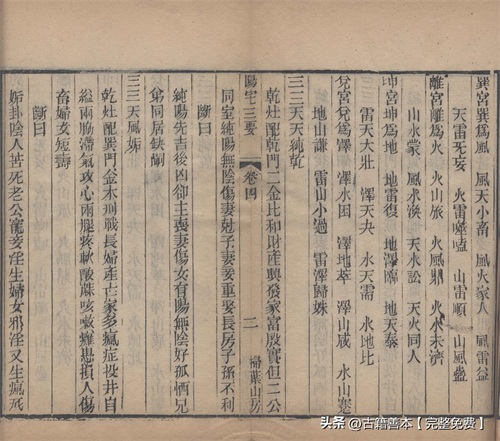 巽宮巽爲風 風天小畜 風火家人 風雷益
天雷无妄 火雷噬嗑 山雷頤 山風蠱
離宮離爲火 火山旅 火風鼎 火水未濟
山水蒙 風水渙 天水訟 天火同人
坤宮坤爲地 地雷復 地澤臨 地天泰
雷天大壯 澤天夬 水天需 水地比
兌宮兌爲澤 澤水困 澤地萃 澤山咸 水山蹇
地山謙 雷山小過 雷澤歸妹
陽宅三要 卷四 二 掃葉山房
三三天天純乾
乾灶配乾門二金比和財產興發家富殷實但二公
同室純陽無陰傷妻尅子妻妾重娶長房子孫不利
斷曰
純陽先吉後凶却主喪妻傷女有陽無陰好孤悽兄
弟同居缺嗣
三三天風姤
乾灶配巽門金木刑戰長婦產亡家多瘋症投井自
縊兩脇滯氣攻心兩腿疼軟酸蔴咳嗽癱患損人傷
畜婦女短壽
斷曰
姤卦陰人苦死老公寵妾淫生婦女邪淫又生瘋死
头条 @古籍善本【完整免费】